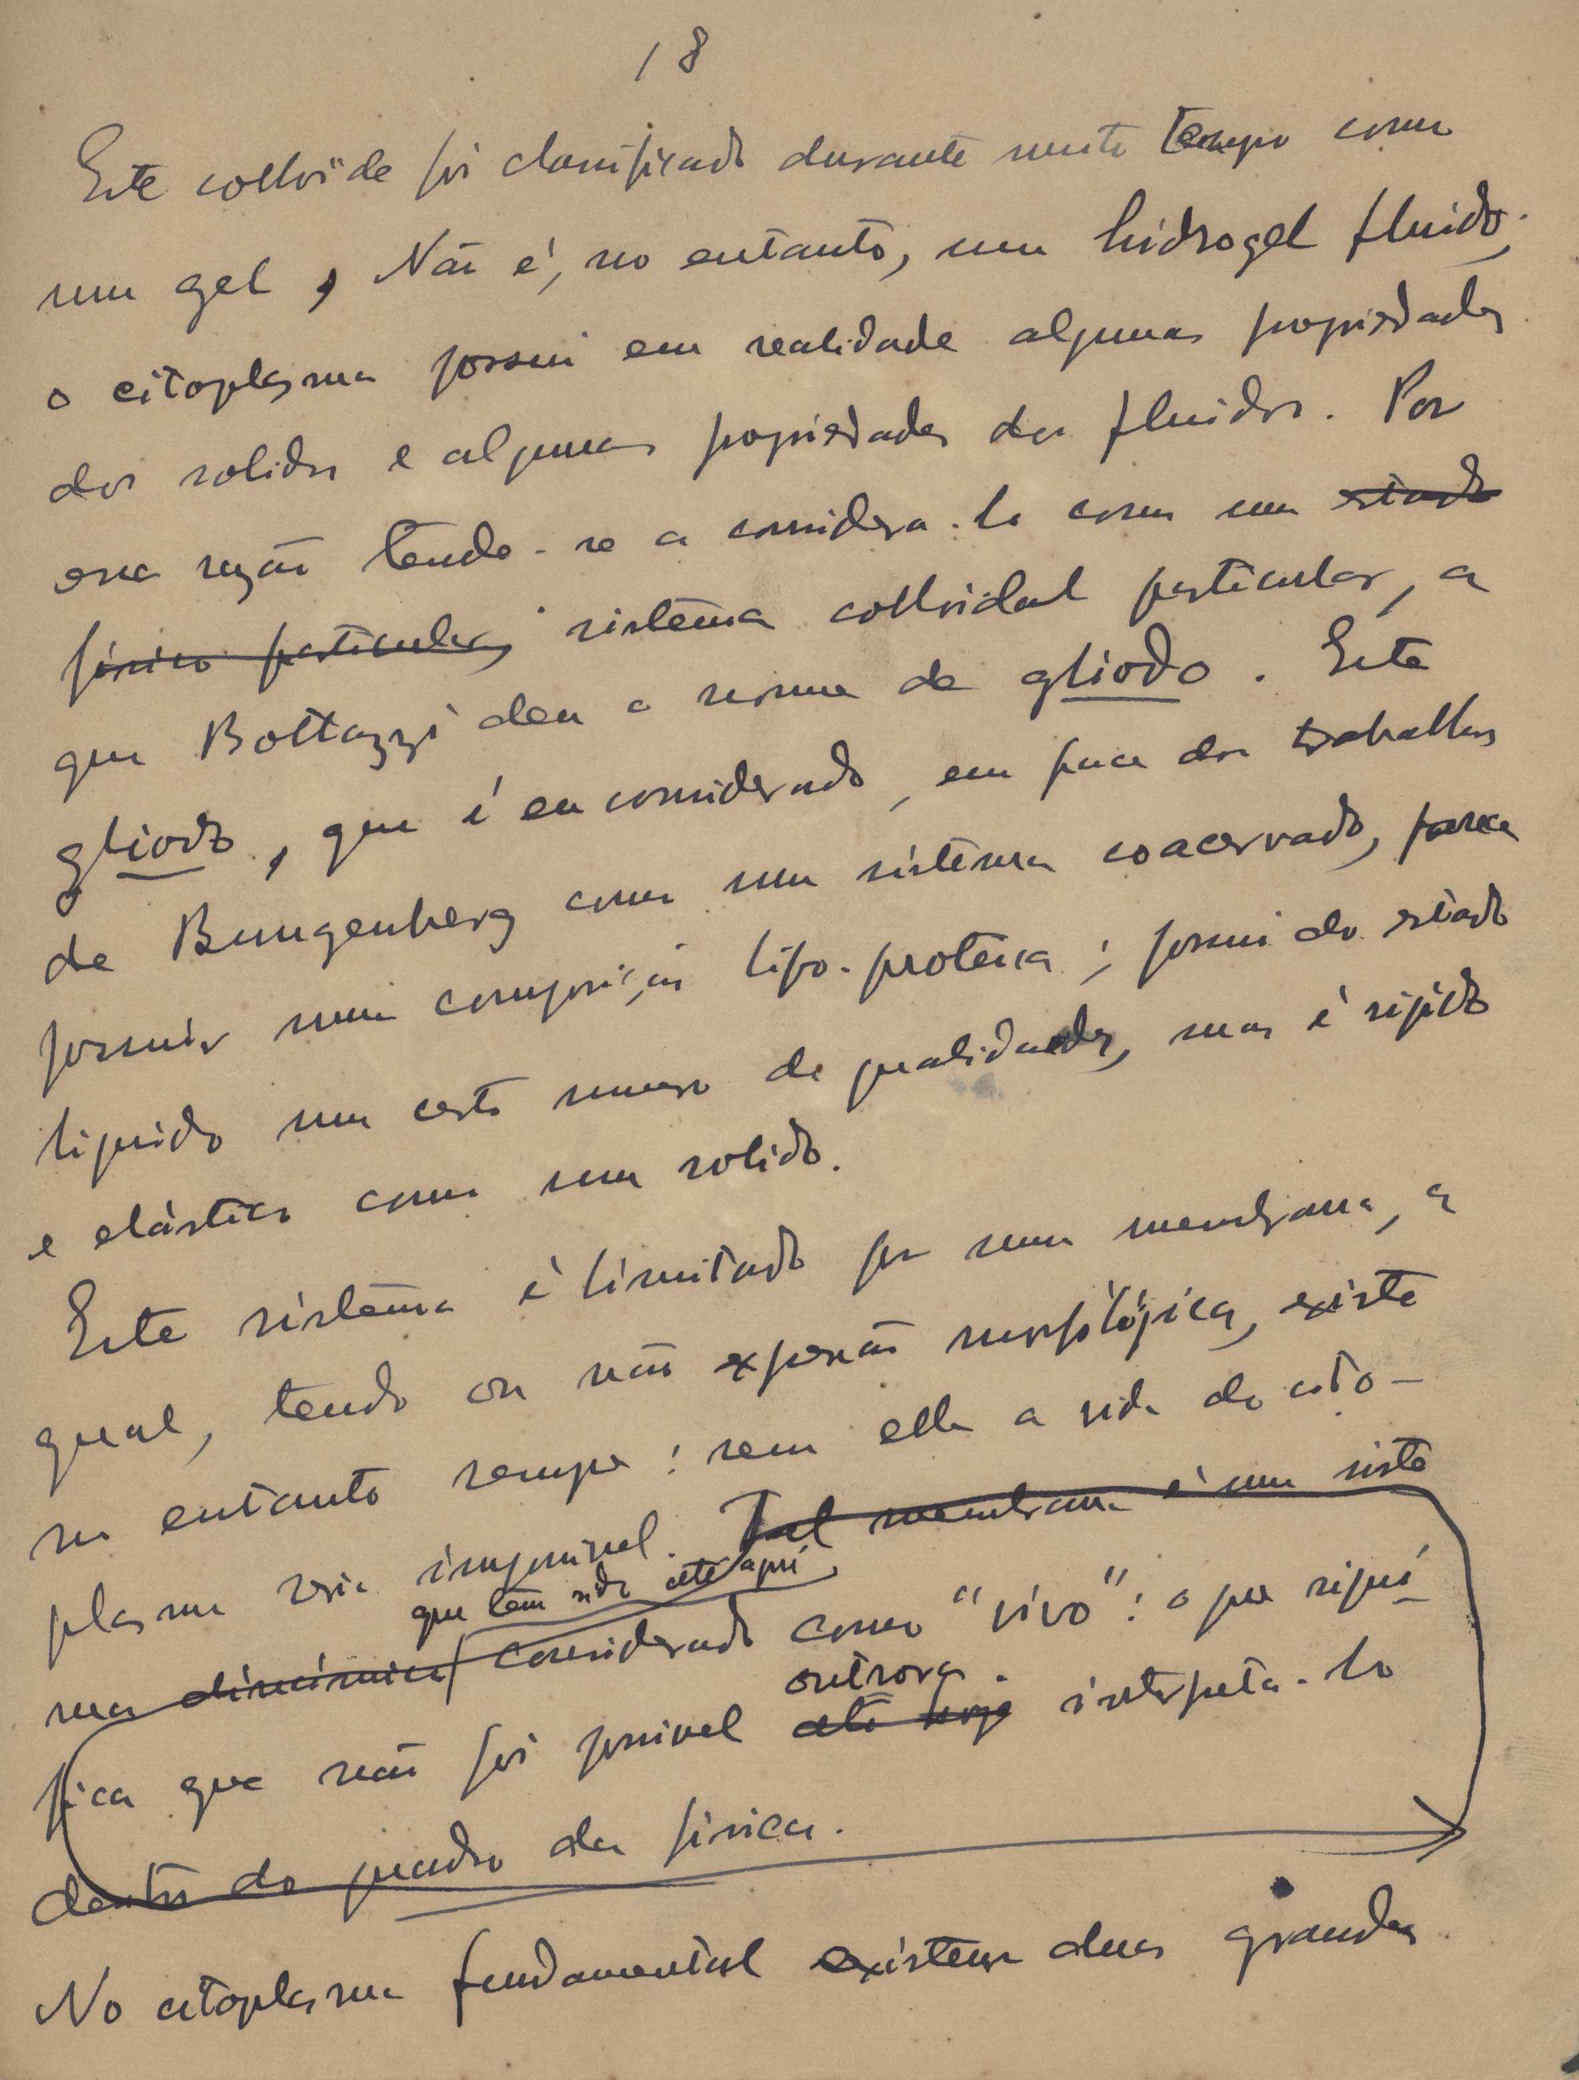 18
Este colloïde foi classificado durante muito tempo como
um gel, Não é, no entanto, um hidrogel fluido;
o citoplasma possui em realidade algumas propriedades
dos solidos e algumas propriedades dos fluidos. Por
essa razão tende-se a considera-lo como um estado
fisico particular, sistema colloidal particular, a
que Bottazzi deu o nome de gliodo. Este
gliodo, que é considerado, em face dos trabalhos
de Bungenberg como um sistema coacervado, parece
possuir uma composição lipo-proteica; possui do estado
liquido um certo numero de qualidades, mas é rigido
e elástico como um solido.
Este sistema é limitado por uma membrana, a
qual, tendo ou não expressão morfológica, existe
no entanto sempre: sem ella a vida do cito-
plasma seria impossivel. Tal membrana é um siste
que tem sido até aqui
ma dinâmico considerado como "vivo": o que signi-
outrora
fica que não foi possivel até hoje interpreta-lo
dentro do quadro da fisica.
No citoplasma fundamental existem duas grandes